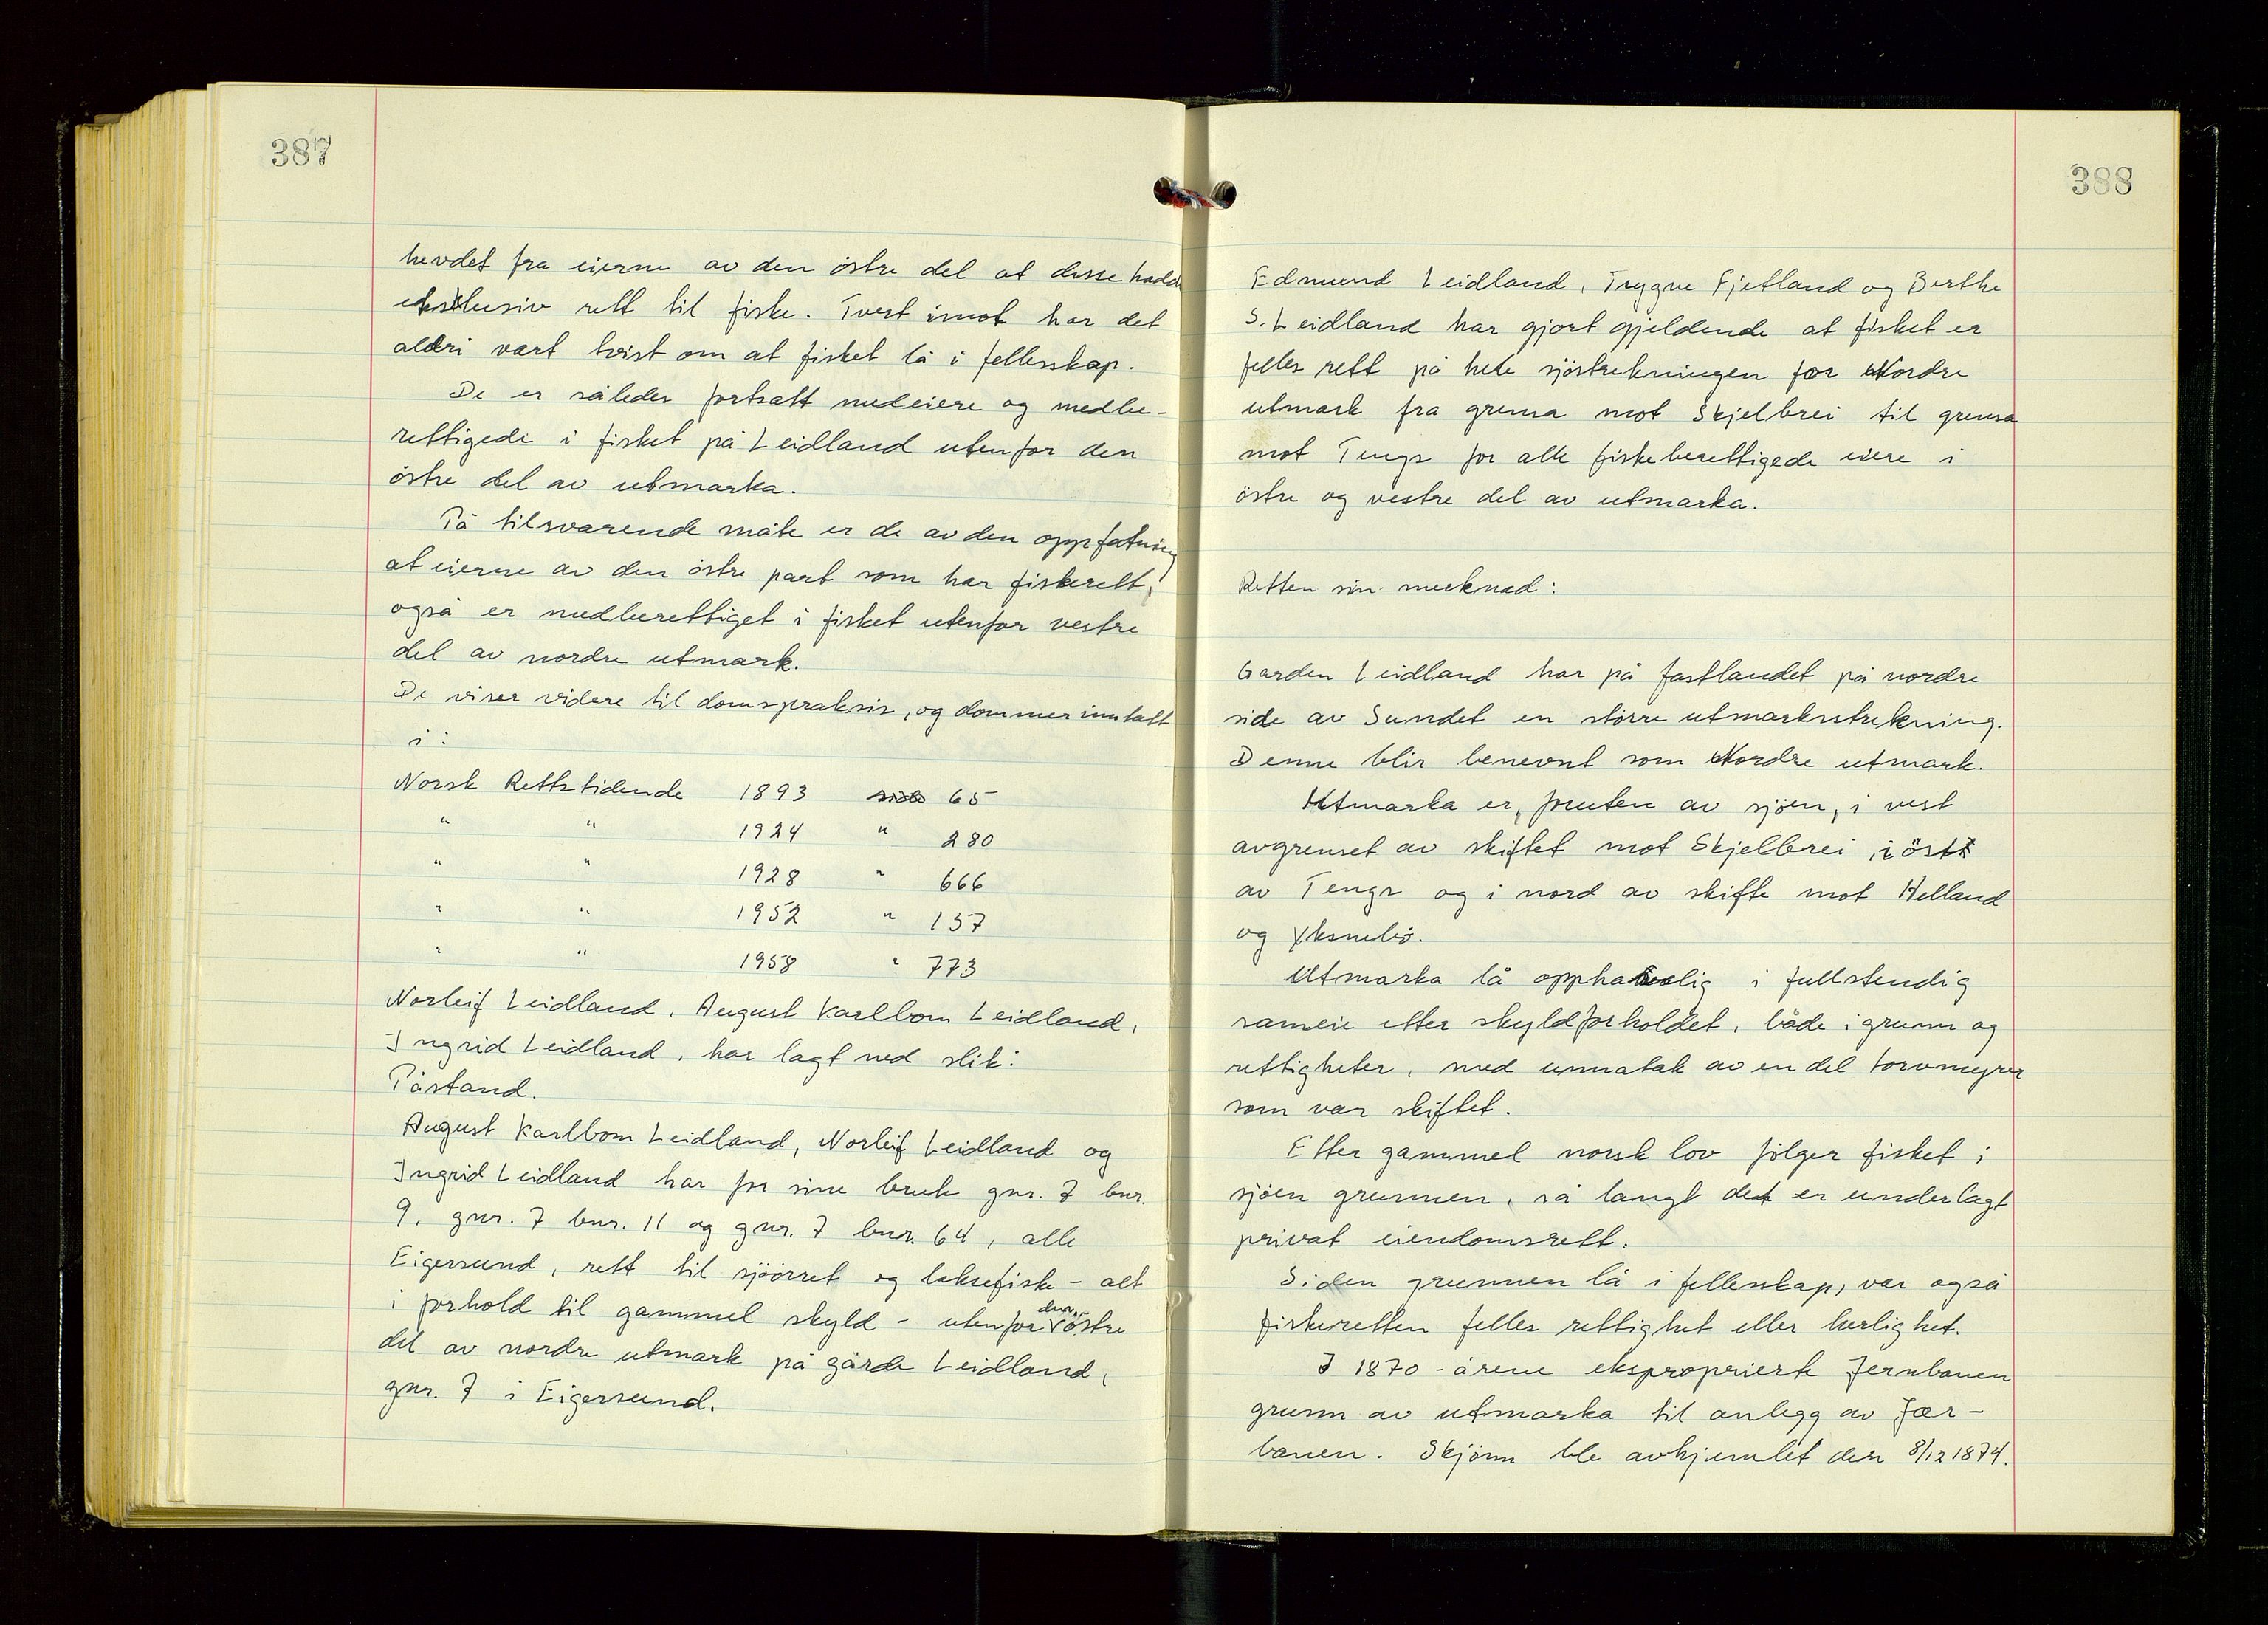 387
hevdet fra eierne av den östre del at disse hadde
eksklusiv rett til fiske. Tvert imot har det
aldri vært tvist om at fisket lå i fellesskap.
De er således fortsatt medeiere og medbe-
rettigede i fisket på Leidland utenfor den
östre del av utmarka.
På tilsvarende måte er de av den oppfatning
at eierne av den östre part som har fiskerett,
også er medberettiget i fisket utenfor vestre
del av nordre utmark.
De viser videre til domspraksis, og dommer inntatt
i:
Norsk Rettstidende 1893 side 65
" " 1924 " 280
" " 1928 " 666
" " 1952 " 157
" " 1958 " 773
Norleif Leidland, August Karlbom Leidland,
Ingrid Leidland, har lagt ned slik:
Påstand.
August Karlbom Leidland, Norleif Leidland og
Ingrid Leidland har for sine bruk gnr. 7 bnr.
9, gnr. 7 bnr. 11 og gnr. 7 bnr. 64, alle
Eigersund, rett til sjöörret og laksefiske - alt
i forhold til gammel skyld - utenfor den östre
del av nordre utmark på gårde Leidland,
gnr. 7 i Eigersund.
388
Edmund Leidland, Trygve Fjetland og Berthe
S. Leidland har gjort gjeldende at fisket er
felles rett på hele sjöstrekningen for Nordre
utmark fra grensa mot Skjelbrei til grensa
mot Tengs for alle fiskeberettigede eiere i
östre og vestre del av utmarka.
Retten sin merknad:
Garden Leidland har på fastlandet på nordre
side av Sundet en större utmarksstrekning.
Denne blir benevnt som Nordre utmark.
Utmarka er, foruten av sjöen, i vest
avgrenset av skiftet mot Skjelbrei, i öst
av Tengs og i nord av skifte mot Helland
og Yksnebö.
Utmarka lå opphavelig i fullstendig
sameie etter skyldforholdet, både i grunn og
rettigheter, med unnatak av en del torvmyrer
som var skiftet.
Etter gammel norsk lov fölger fisket i
sjöen grunnen, så langt det er underlagt
privat eiendomsrett.
Siden grunnen lå i fellesskap, var også
fiskeretten felles rettighet eller herlighet.
I 1870-årene eksproprierte Jernbanen
grunn av utmarka til anlegg av Jær-
banen. Skjönn ble avhjemlet den 8/12 1874.